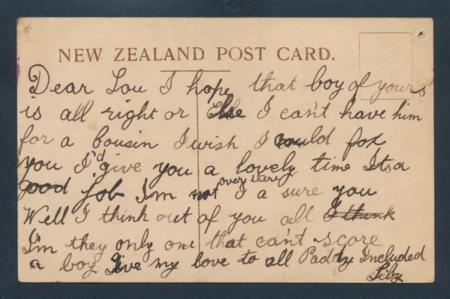 NEW ZEALAND POST CARD.
Dear Lou I hope that boy of yours
is all right or Else I can't have him
for a cousin I wish I could for
you I'd give you a lovely time Its a
good job I'm not over there I a sure you
Well I think out of you all I think
I'm they only one that can't score
a boy Give my love to all Paddy Included